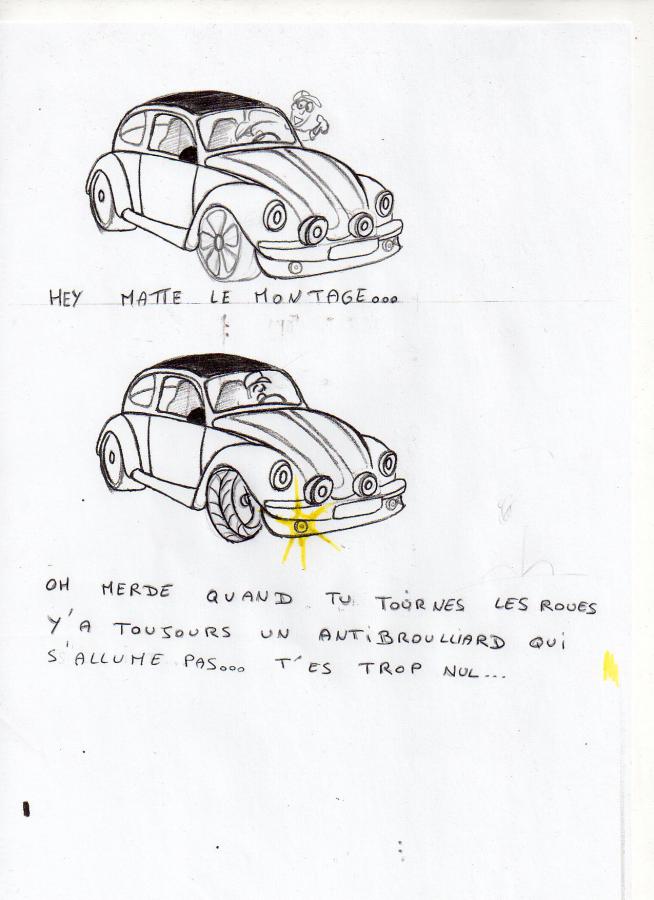 HEY MATTE LE MONTAGE...
OH MERDE QUAND TU TOURNES LES ROUES
Y'A TOUJOURS UN ANTIBROULLIARD QUI
S'ALLUME PAS... T'ES TROP NUL...